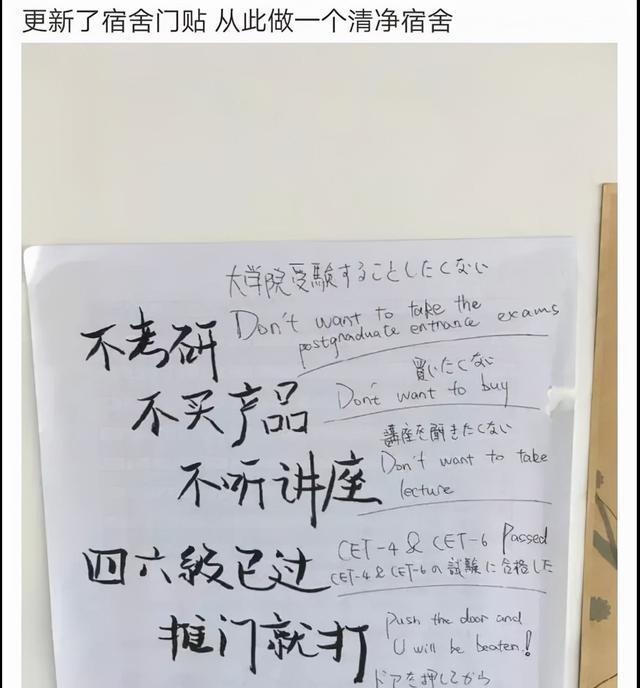 更新了宿舍门贴 从此做一个清净宿舍
大学院受験することしたくない
不考研
Don't want to take the
postgraduate entrance exams
買いたくない
不买产品
Don't want to buy
講座を聞きたくない
不听讲座
Don't want to take
lecture
四六級已过
CET-4 & CET-6 Passed
CET-4 & CET-6の試験に合格した
推门就打
push the door and
U will be beaten!
ドアを押してから